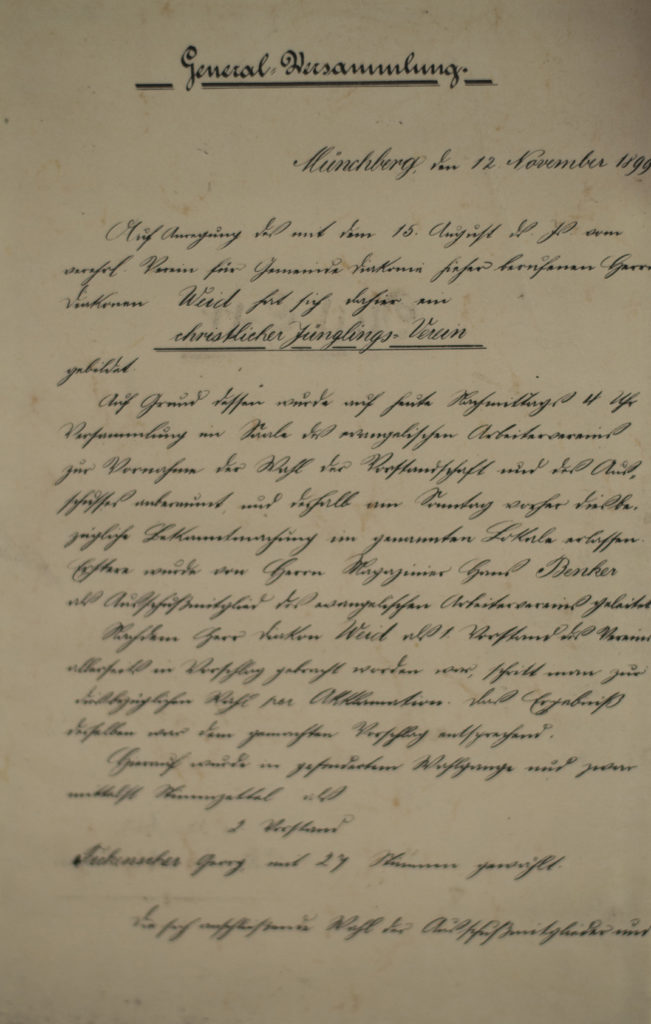 General-Versammlung.
Münchberg, den 12. November 1899
Auf Anregung des mit dem 15. August ds Js. vom
verehrl. Verein für Gemeinde Diakonie hieher berufenen Herrn
Diakonen Weid hat sich dahier ein
christlicher Jünglings-Verein
gebildet.
Auf Grund dessen wurde auf heute Nachmittags 4 Uhr
Versammlung im Saale des evangelischen Arbeitervereins
zur Vornahme der Wahl der Vorstandschaft und des Aus-
schusses anberaumt und deshalb am Sonntag vorher diesbe-
zügliche Bekanntmachung im genannten Lokale erlassen.
Erstere wurde von Herrn Magazinier Hans Benker
als Ausschußmitglied des evangelischen Arbeitervereins geleitet
Nachdem Herr Diakon Weid als 1. Vorstand des Vereins
allerseits in Vorschlag gebracht worden war, schritt man zur
diesbezüglichen Wahl per Akklamation. Das Ergebniß
derselben war dem gemachten Vorschlag entsprechend.
Hierauf wurde in gesondertem Wahlgange und zwar
mittelst Stimmzettel als
2. Vorstand
Fickenscher Georg mit 27 Stimmen gewählt.
Die sich anschließende Wahl der Ausschußmitglieder und